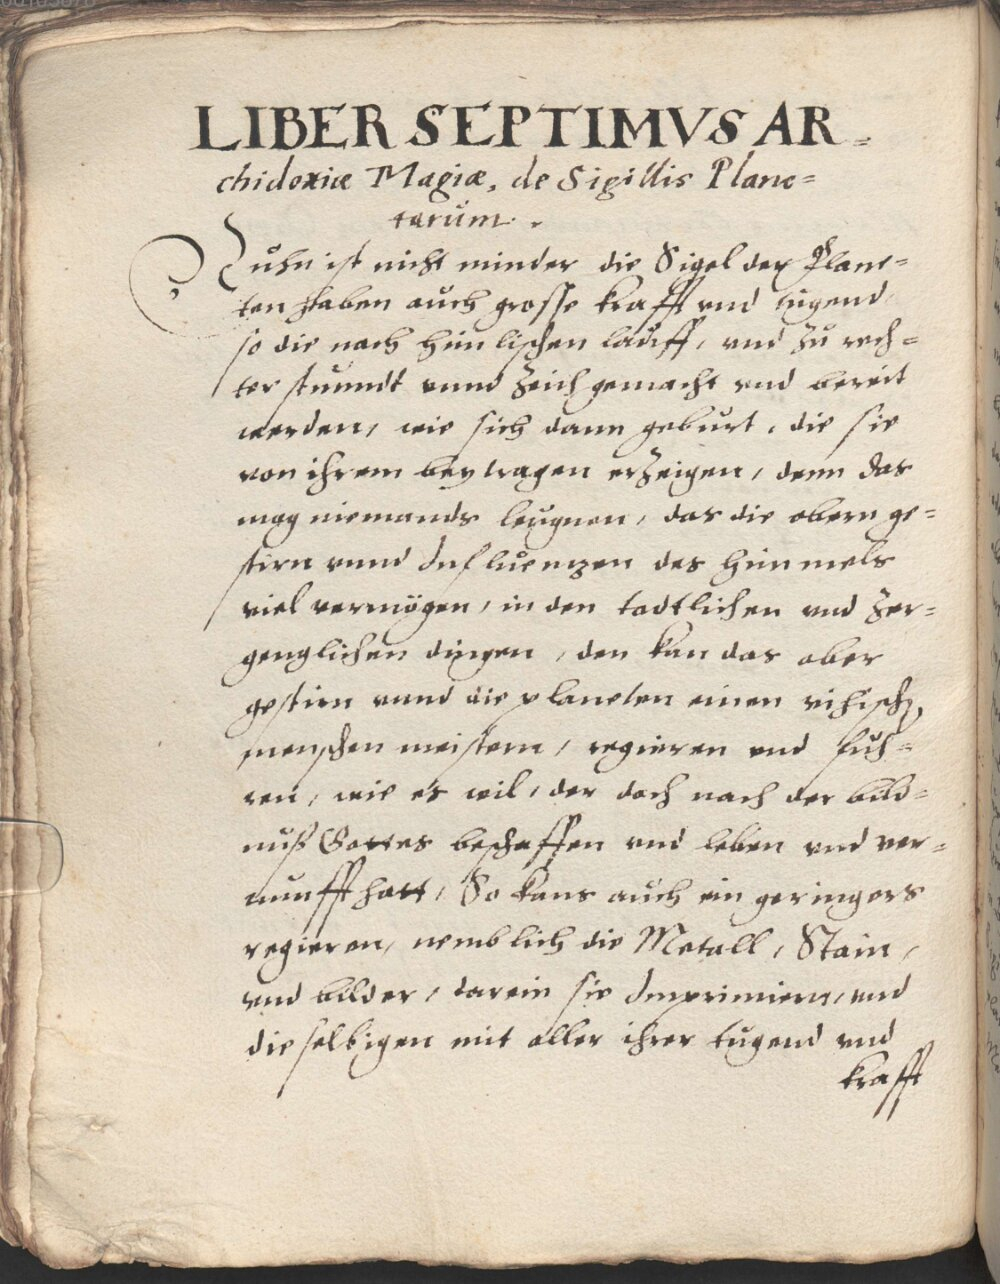 LIBER SEPTIMVS AR=
chidoxiæ Magiæ, de Sigillis Plane=
tarum.
Nuhn ist nicht minder die Sigel der Plane-
ten haben auch grosse krafft vnd tugend,
so die nach himlischen lauff, vnd zu rech=
ter stuundt vnnd Zeich gemacht vnd bereit
werden, wie sich dann geburt, die sie
von ihrem beytragen erzeigen, denn das
mag niemands leugnen, das die obern ge=
stirn vnnd Influenzen des himmels
viel vermögen, in den todtlichen vnd zer=
genglichen dingen, den kan das ober
gestirn vnnd die planeten einen
menschen meistern, regieren vnd fuh=
ren, wie es wil, der doch nach der bild=
nuß Gottes beschaffen vnd leben vnd ver=
nunfft hatt, So kans auch ein geringers
regieren, nemblich die Metall, Stain,
vnd bilder, darein sie Imprimiern, vnd
dieselbigen mit aller ihrer tugend vnd
krafft